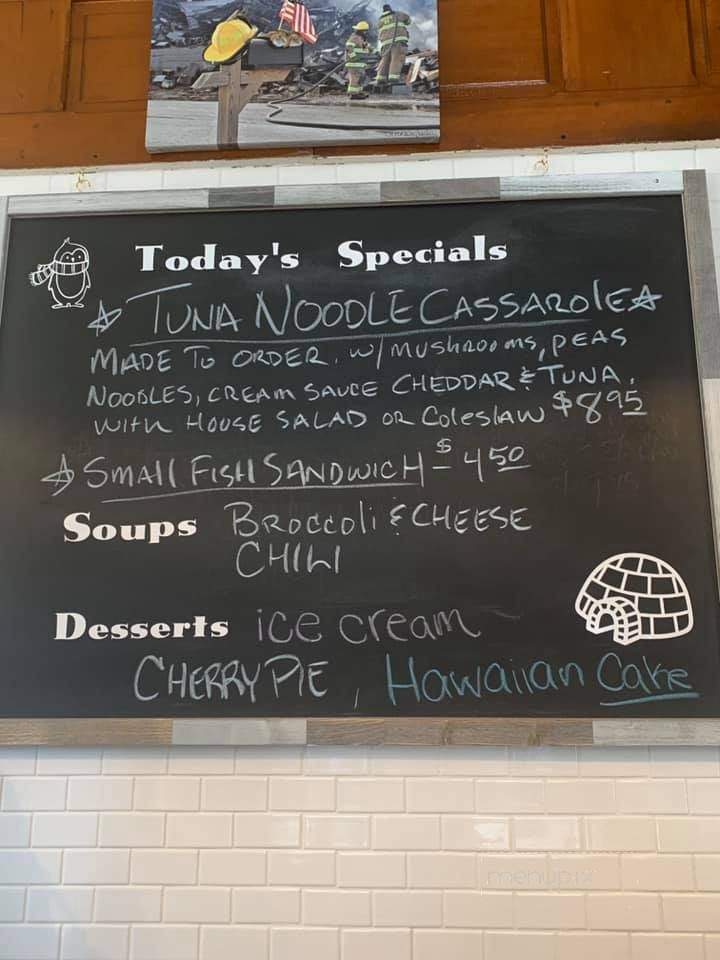 Today's Specials
TUNA NOODLE CASSAROLE
MADE TO ORDER. W/ MUSHROOMS, PEAS
NOODLES, CREAM SAUCE CHEDDAR & TUNA.
WITH HOUSE SALAD OR Coleslaw $8.95
SMALL FISH SANDWICH - $4.50
Soups BROCCOLI & CHEESE
CHILI
Desserts ice cream
CHERRY PIE, Hawaiian Cake
menupix